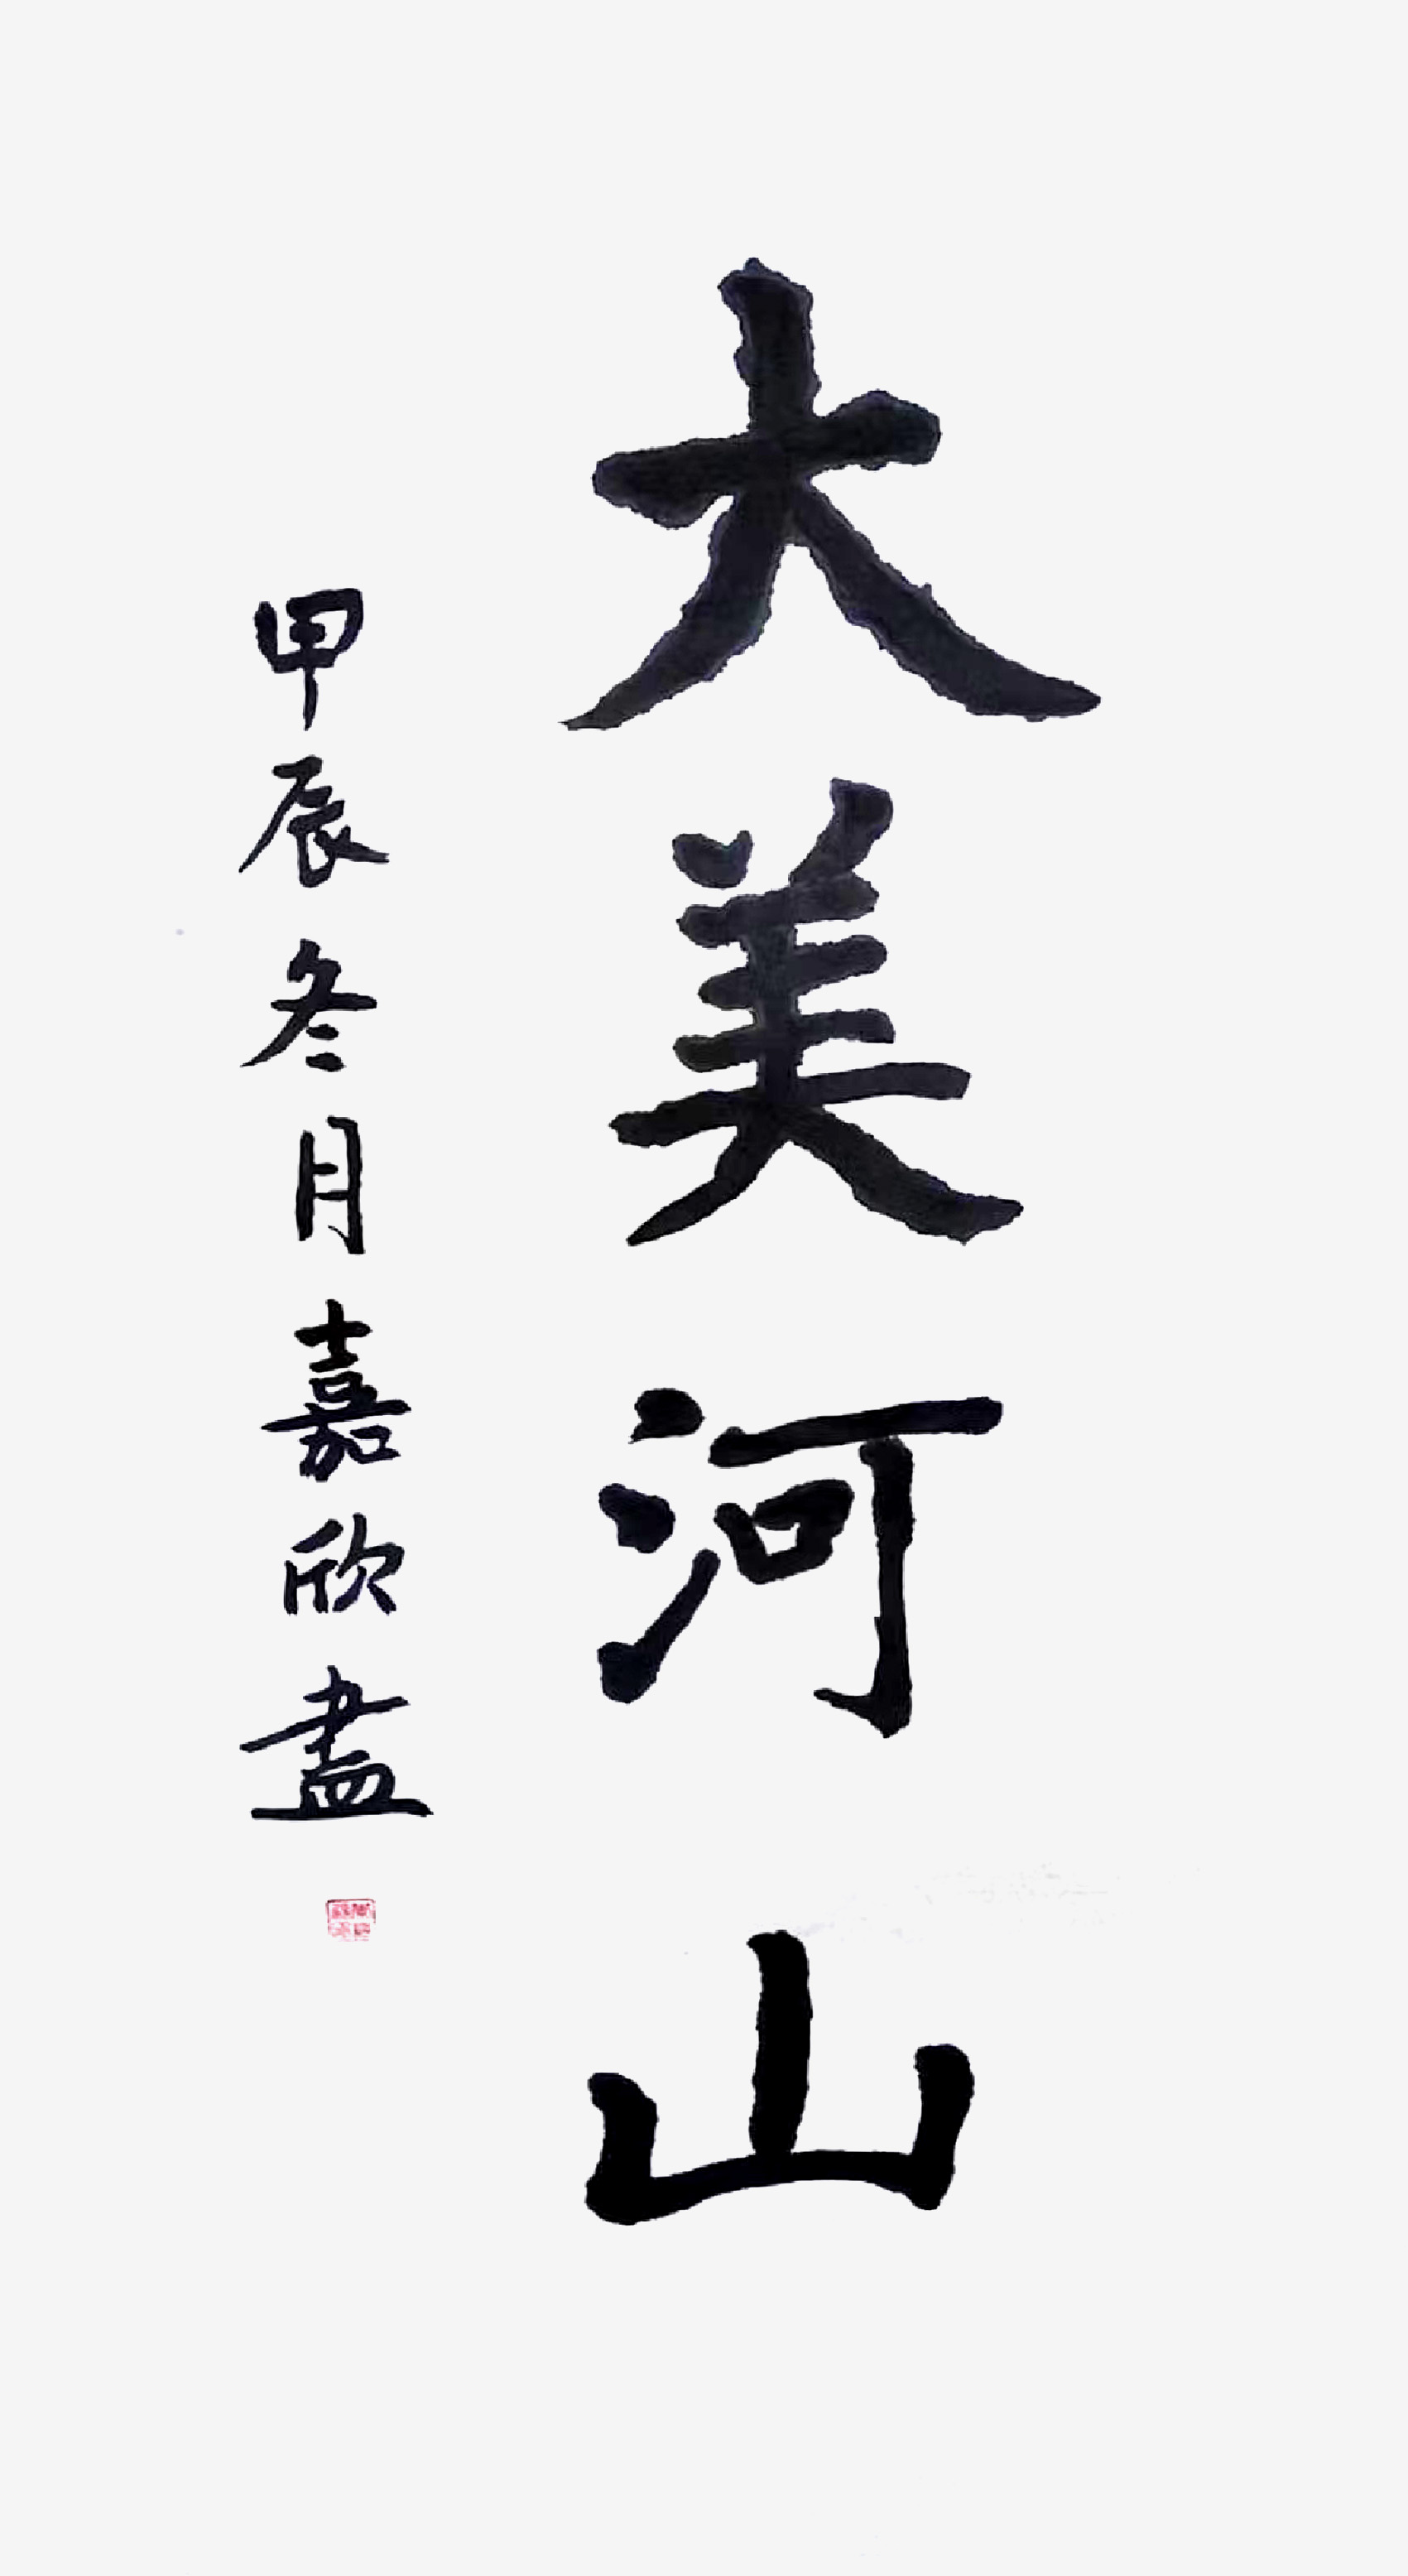 大美河山
甲辰冬月嘉欣盡